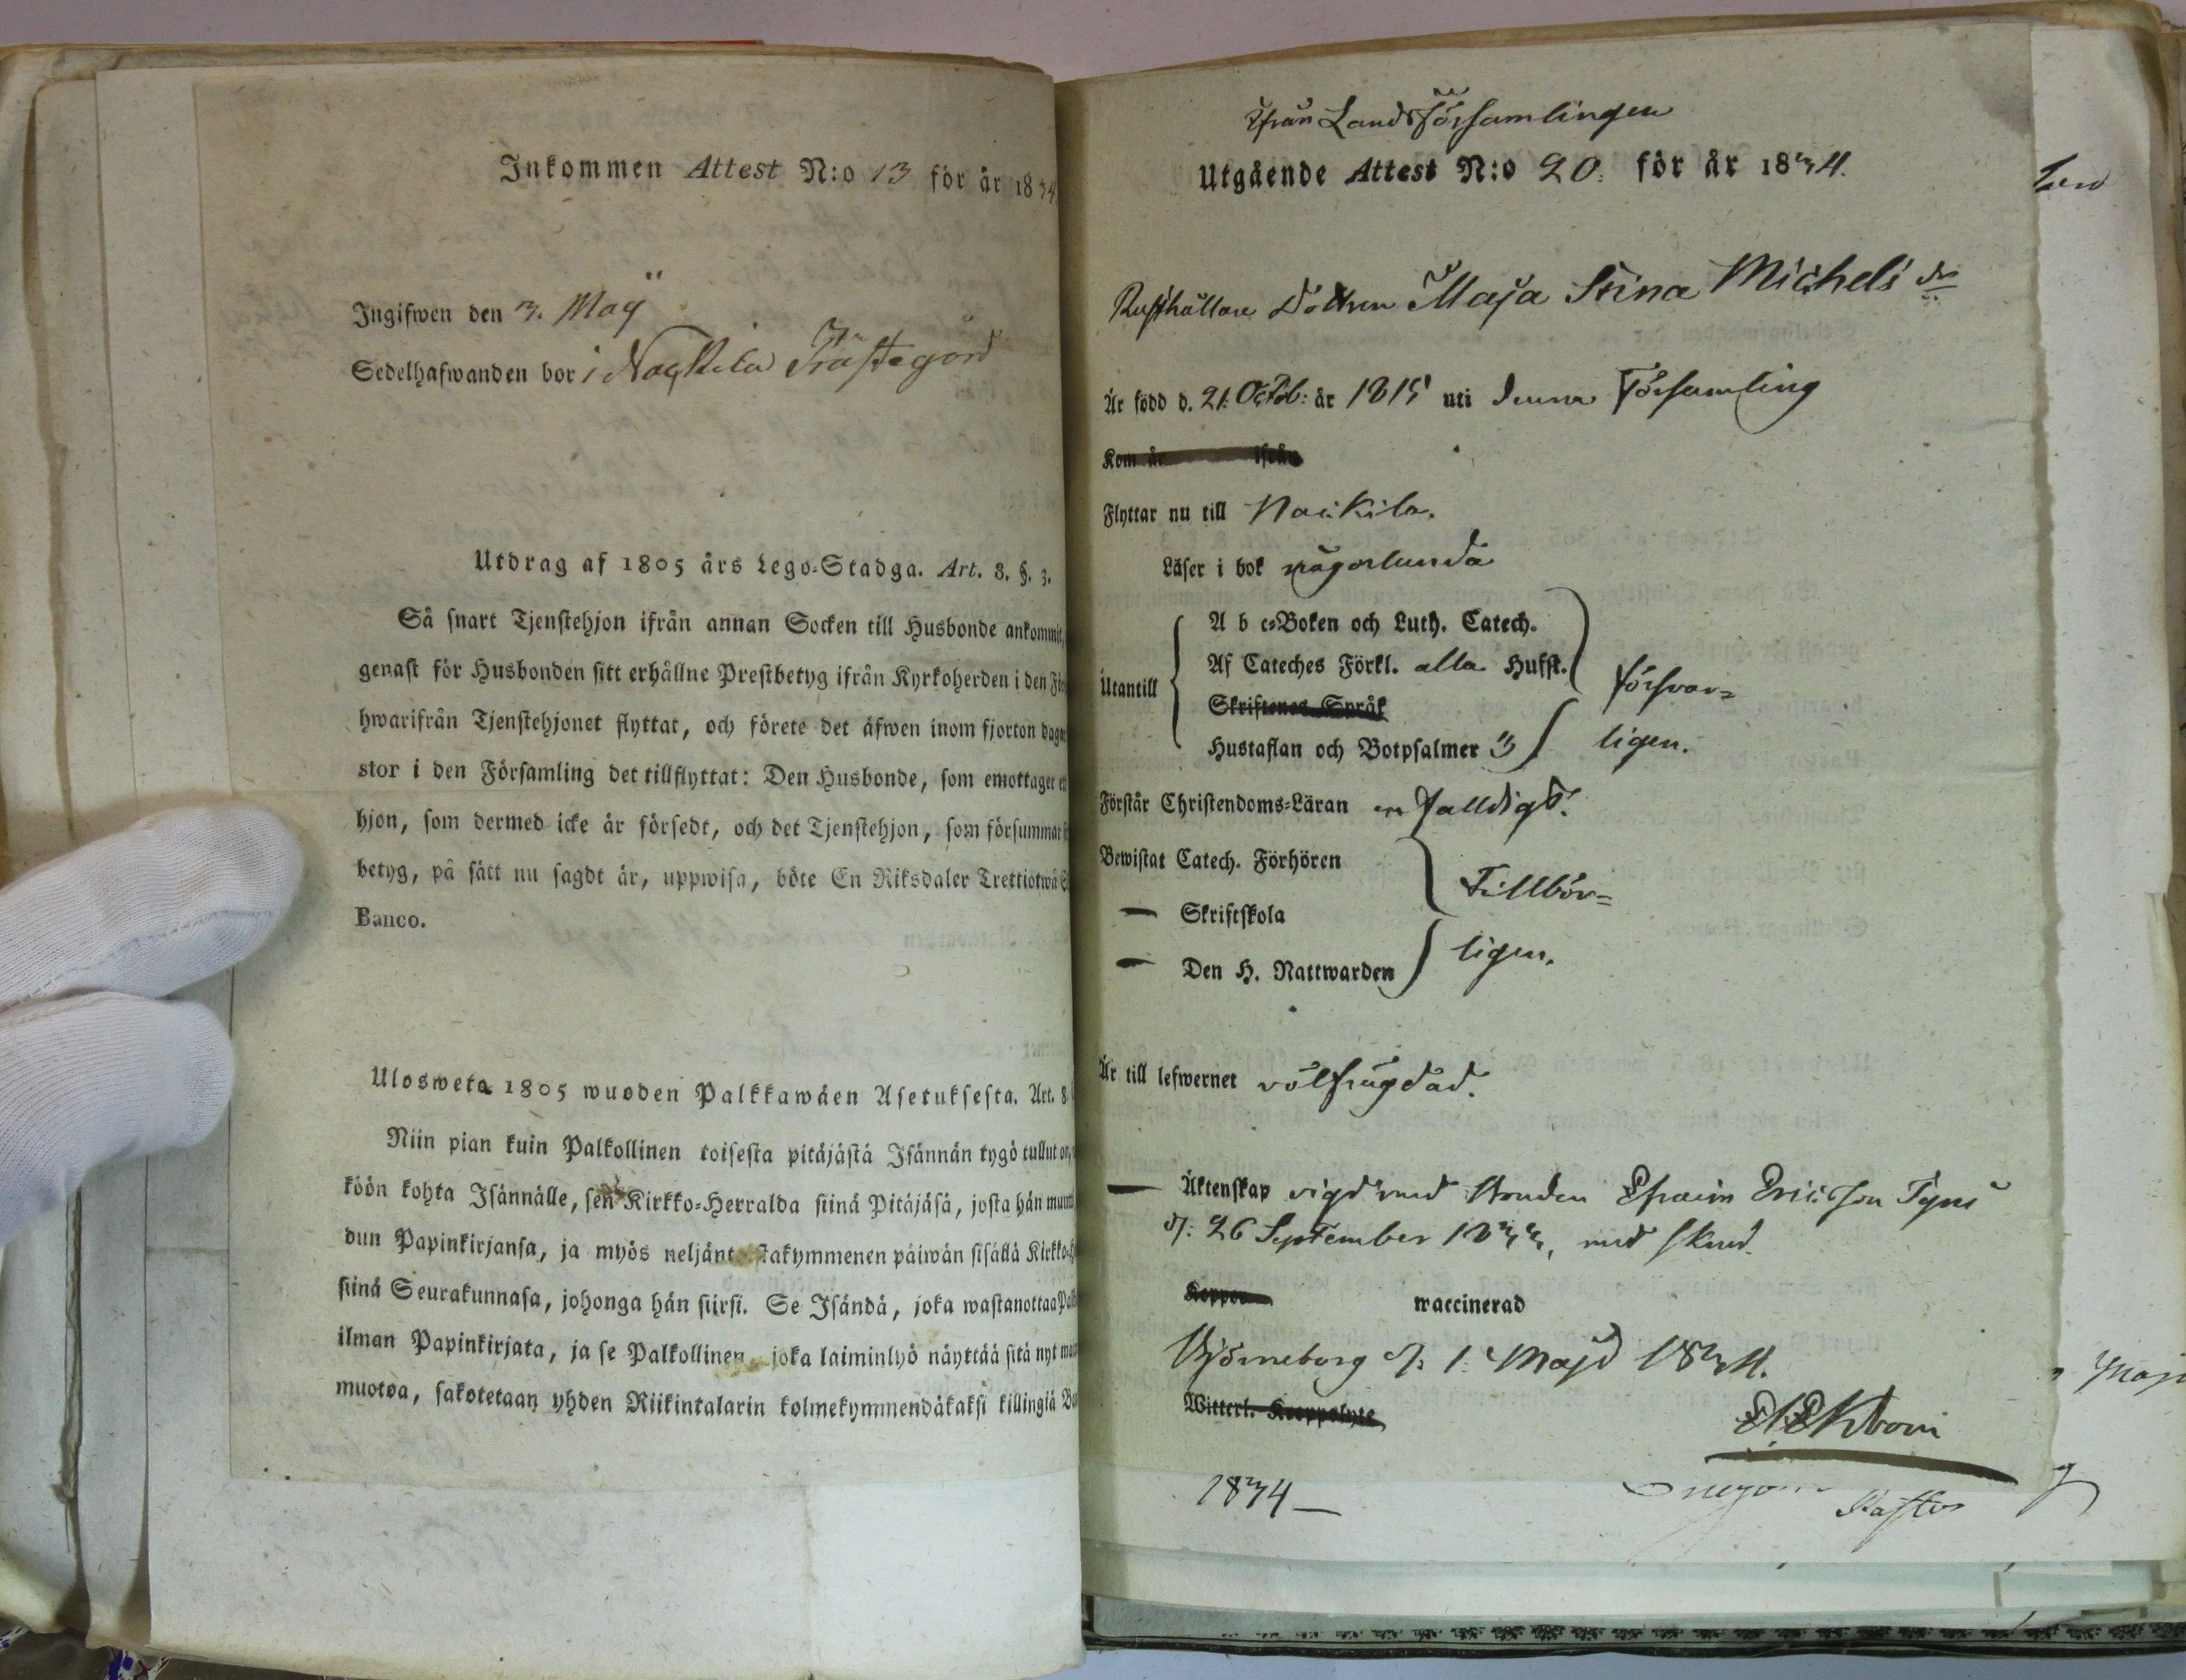 Inkommen Attest N:o 13 för år 1834
Ingifwen den 3. Maÿ
Sedelhafwanden bor i Nackila Prästegård
Utdrag af 1805 års Lego-Stadga. Art. 8. §. 3.
Så snart Tjenstehjon ifrån annan Socken till Husbonde ankommit,
genast för Husbonden sitt erhållne Prestbetyg ifrån Kyrkoherden i den För
hwarifrån Tjenstehjonet flyttat, och förete det äfwen inom fjorton dagar
stor i den Församling det tillflyttat: Den Husbonde, som emottager et
hjon, som dermed icke är försedt, och det Tjenstehjon, som försummar
betyg, på sätt nu sagdt är, uppwisa, böte En Riksdaler Trettiotwå S
Banco.
Ulosweta 1805 wuoden Palkkawäen Asetuksesta. Art. 8
Niin pian kuin Palkollinen toisesta pitäjästä Isännän tygö tullut on,
köön kohta Isännälle, sen Kirkko-Herralda siinä Pitäjäsä, josta hän muutt
dun Papinkirjansa, ja myös neljäntoistakymmenen päiwän sisällä Kirkko-H
siinä Seurakunnasa, johonga hän siirsi. Se Isändä, joka wastanottaa Palk
ilman Papinkirjata, ja se Palkollinen, joka laiminlyö näyttää sitä nyt main
muotoa, sakotetaan yhden Riikintalarin kolmekymmendäkaksi killingiä Ba
Från Landsförsamlingen
Utgående Attest N:o 20. för år 1834.
Rusthållare Dottren Maja Stina Michels dr
Är född d. 21. Octob: år 1815 uti denna Församling
Kom år ifrån
Flyttar nu till Nackila.
Läser i bok någorlunda
Utantill
A b c-Boken och Luth. Catech.
Af Cateches Förkl. alla Hufst.
Skriftenes Språk
Hustaflan och Botpsalmer 3
försvar=
ligen.
Förstår Christendoms-Läran enfalldigt.
Bewistat Catech. Förhören
— Skriftskola
— Den H. Nattwarden
Tillbör=
ligen.
Är till lefwernet välfrägdad.
— Äktenskap vigd med Bonden Efraim Ericsson Tyni
d: 26 September 1833, med
Koppor waccinerad
Björneborg d: 1. Maji 1834.
Witterl. Kroppslyte
1834 —
Pastor
Maji